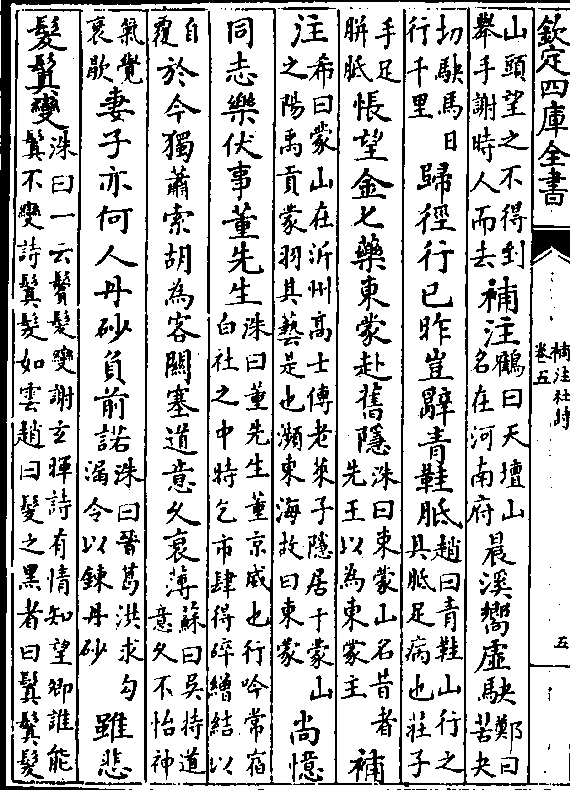 欽定四庫全書
補注杜詩
卷五
五
山頭望之不得到
舉手謝時人而去
補注
鶴曰天壇山
名在河南府
晨溪嚮虛駃
鄭曰
苦夬
切駃馬日
行千里
歸徑行已昨豈辭青鞋胝
趙曰青鞋山行之
具胝足病也莊子
手足
胼胝
悵望金匕藥東蒙赴舊隱
洙曰東蒙山名昔者
先王以為東蒙主
補
注
希曰蒙山在沂州高士傳老萊子隱居于蒙山
之陽禹貢蒙羽其藝是也瀕東海故曰東蒙
尚憶
同志樂伏事董先生
洙曰董先生董京威也行吟常宿
白社之中時乞市肆得碎繒結以
自
覆
於今獨蕭索胡為客關塞道意久衰薄
蘇曰吳持道
意久不怡神
氣覺
衰歇
妻子亦何人丹砂負前諾
洙曰晉葛洪求勾
漏令以鍊丹砂
雖悲
髮鬒變
洙曰一云鬢髮變謝玄暉詩有情知望鄉誰能
鬒不變詩鬒髮如雲趙曰髮之黑者曰鬒鬒髮